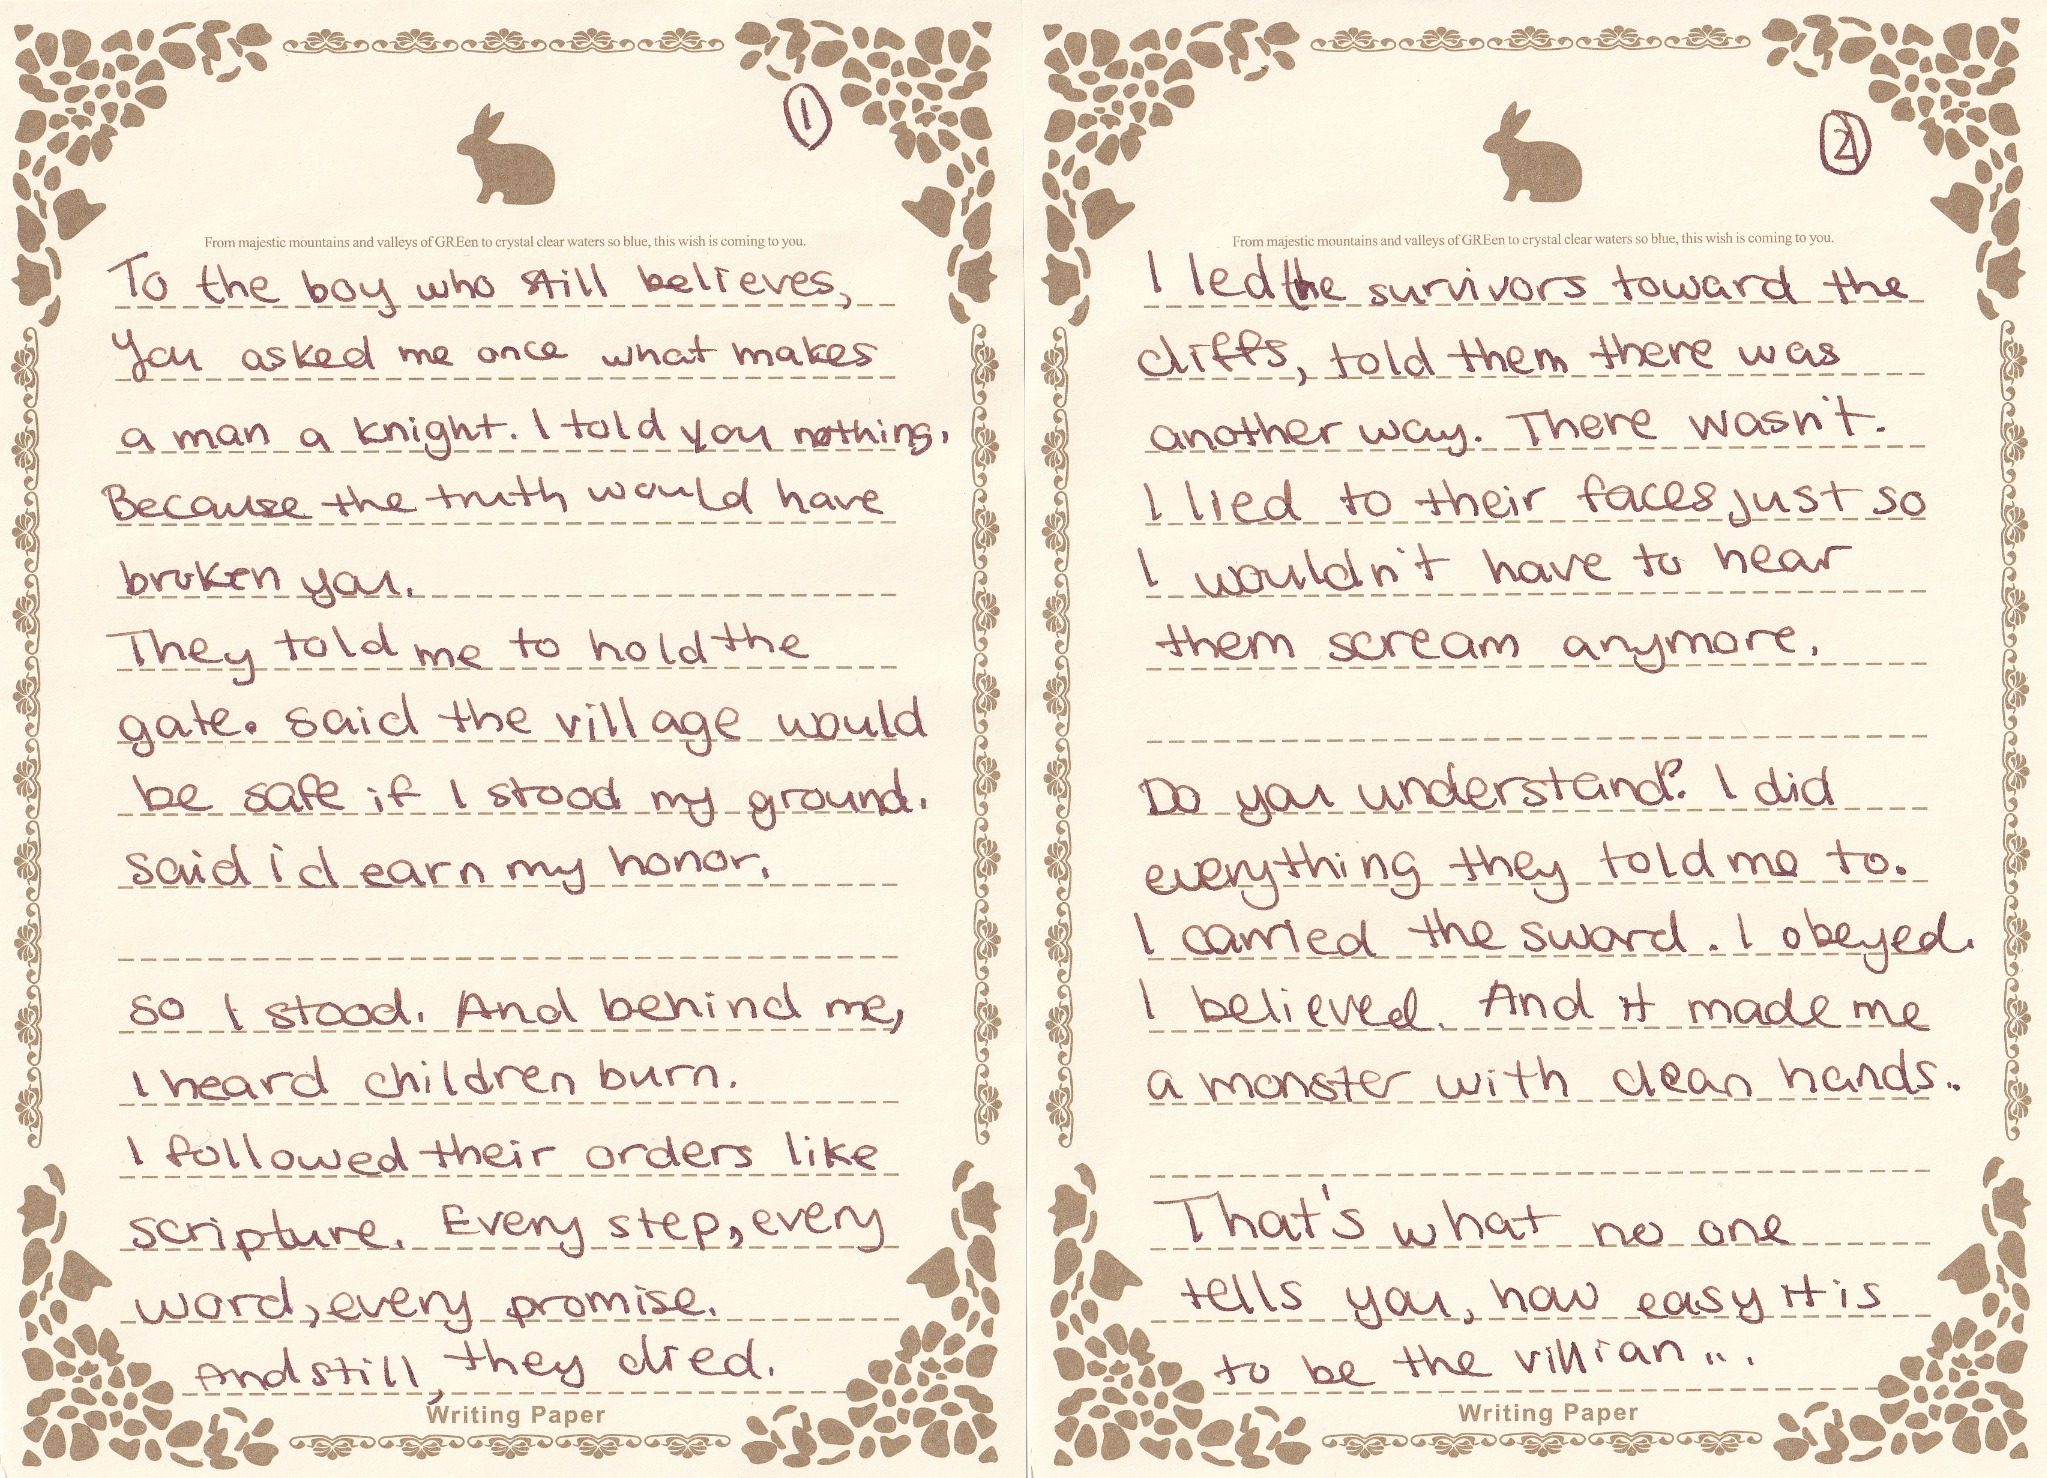 1
From majestic mountains and valleys of GREen to crystal clear waters so blue, this wish is coming to you.
To the boy who still believes,
You asked me once what makes
a man a knight. I told you nothing.
Because the truth would have
broken you.
They told me to hold the
gate. said the village would
be safe if I stood my ground.
said i'd earn my honor.
so I stood. And behind me,
I heard children burn.
I followed their orders like
scripture. Every step, every
word, every promise.
And still, they died.
Writing Paper
2
From majestic mountains and valleys of GREen to crystal clear waters so blue, this wish is coming to you.
I led the survivors toward the
cliffs, told them there was
another way. There wasn't.
I lied to their faces just so
I wouldn't have to hear
them scream anymore.
Do you understand? I did
everything they told me to.
I carried the sword. I obeyed.
I believed. And it made me
a monster with clean hands..
That's what no one
tells you, how easy it is
to be the villian...
Writing Paper